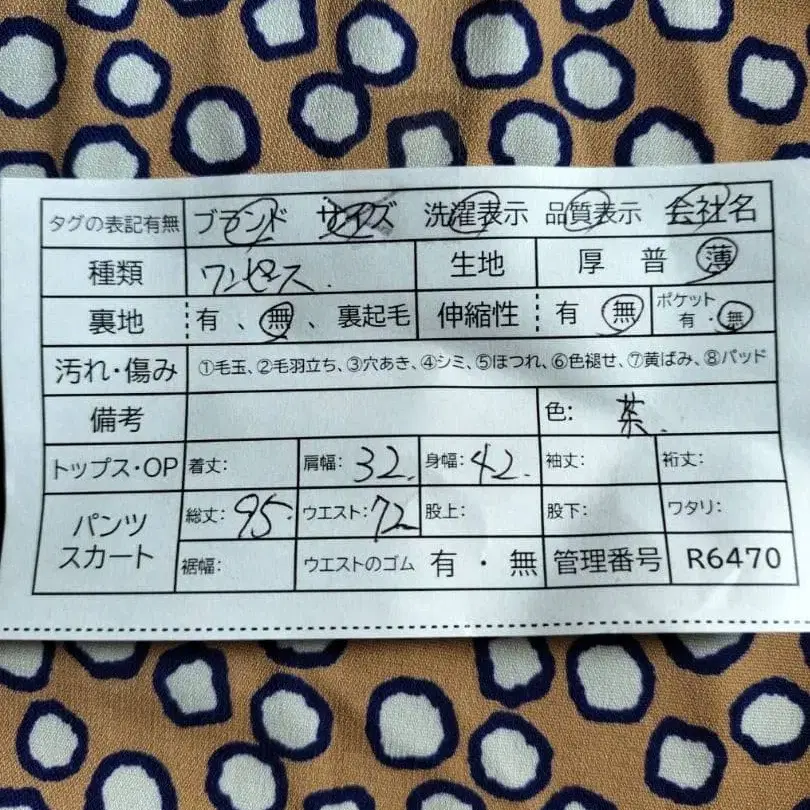 タグの表記有無 ブランド サイズ 洗濯表示 品質表示 会社名
種類 ワンピース. 生地 厚 普 薄
裏地 有、無、裏起毛 伸縮性 有 無 ポケット 有・無
汚れ・傷み ①毛玉、②毛羽立ち、③穴あき、④シミ、⑤ほつれ、⑥色褪せ、⑦黄ばみ、⑧パッド
備考 色: 茶.
トップス・OP 着丈: 肩幅: 32. 身幅: 42. 袖丈: 裄丈:
パンツ スカート 総丈: 95. ウエスト: 72 股上: 股下: ワタリ:
裾幅: ウエストのゴム 有・無 管理番号 R6470